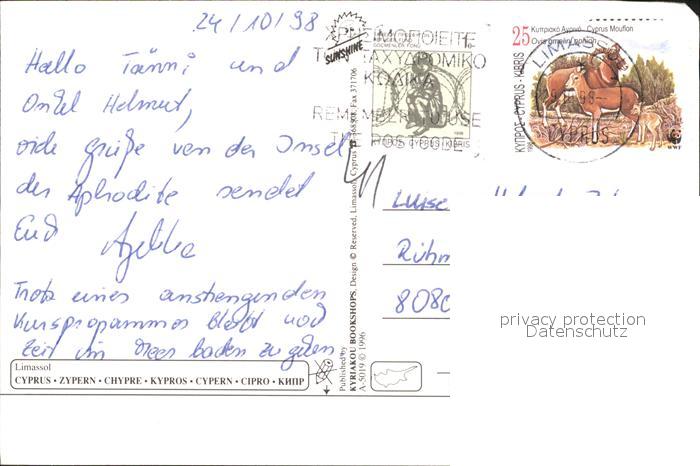 24/10/98
Hallo Tanni und
Onkel Helmut,
viele Grüße von der Insel
der Aphrodite sendet
Euch
Trotz eines anstrengenden
Kursprogrammes bleibt noch
Zeit im Meer baden zu gehen
Limassol
CYPRUS • ZYPERN • CHYPRE • KYPROS • CYPERN • CIPRO • КИПР
SUNSHINE
Published by
KYRIAKOU BOOKSHOPS, Design © Reserved, Limassol
Fax 371706
A-5019 © 1996
ΤΑΧΥΔΡΟΜΙΚΟ
ΚΩΔΙΚΑ
REMEMBER TO USE
POST CODE
GÖÇMENLER FONU
1c
1998
ΚΥΠΡΟΣ CYPRUS KIBRIS
25
Κυπριακό Αγρινό - Cyprus Mouflon
Ovis gmelini ophion
ΚΥΠΡΟΣ - CYPRUS - KIBRIS
1998
WWF
LIMASSOL
98
CYPRUS
Luise
Rühm
8080
privacy protection
Datenschutz